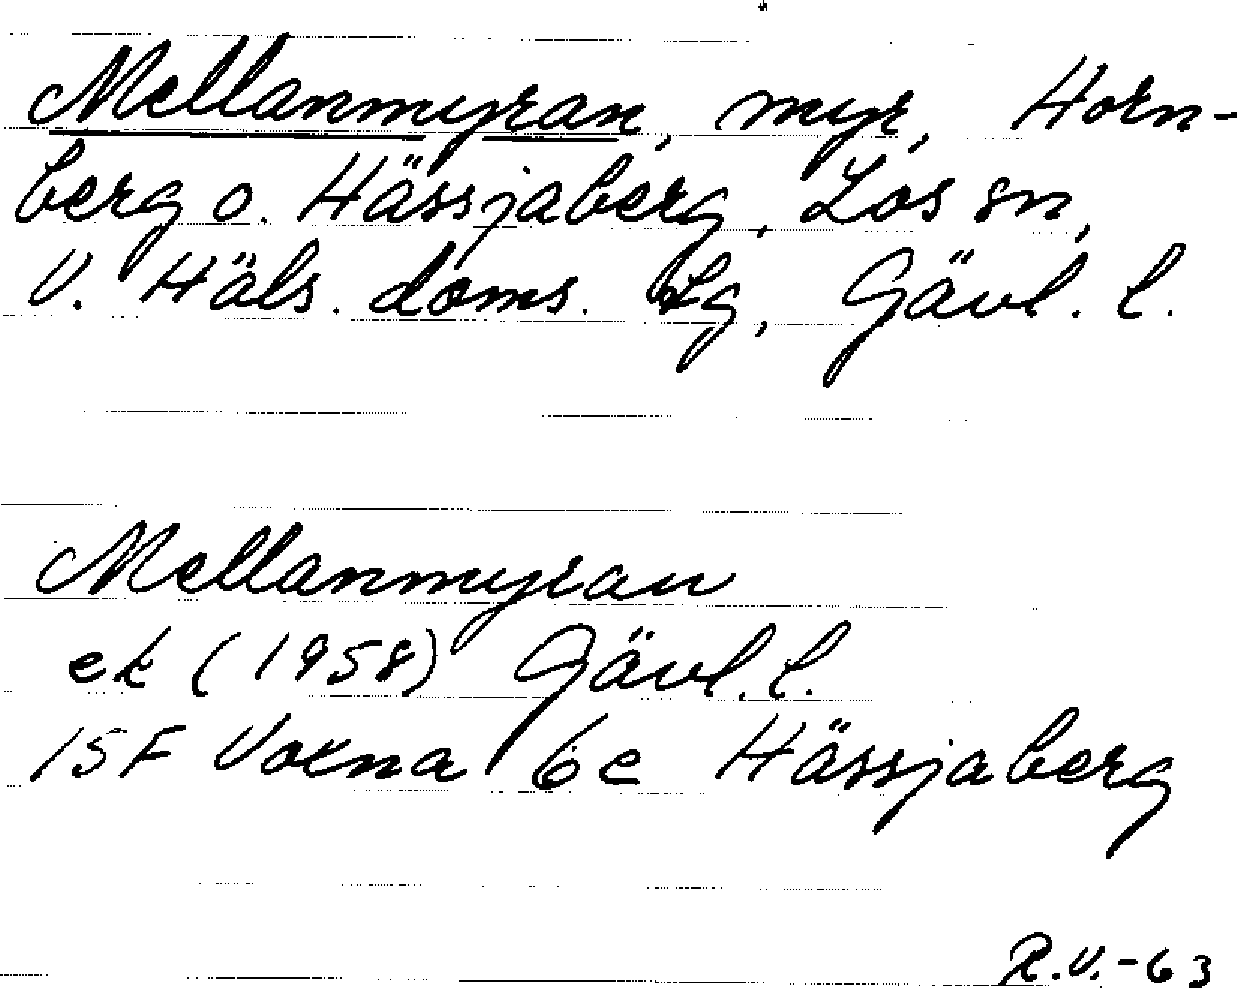 Mellanmyran, myr, Horn-
berg o. Hässjaberg, Los sn,
V. Häls. doms. Lg, Gävl. l.
Mellanmyran
ek (1958) Gävl. l.
15F Voxna 6e Hässjaberg
R.V.-63